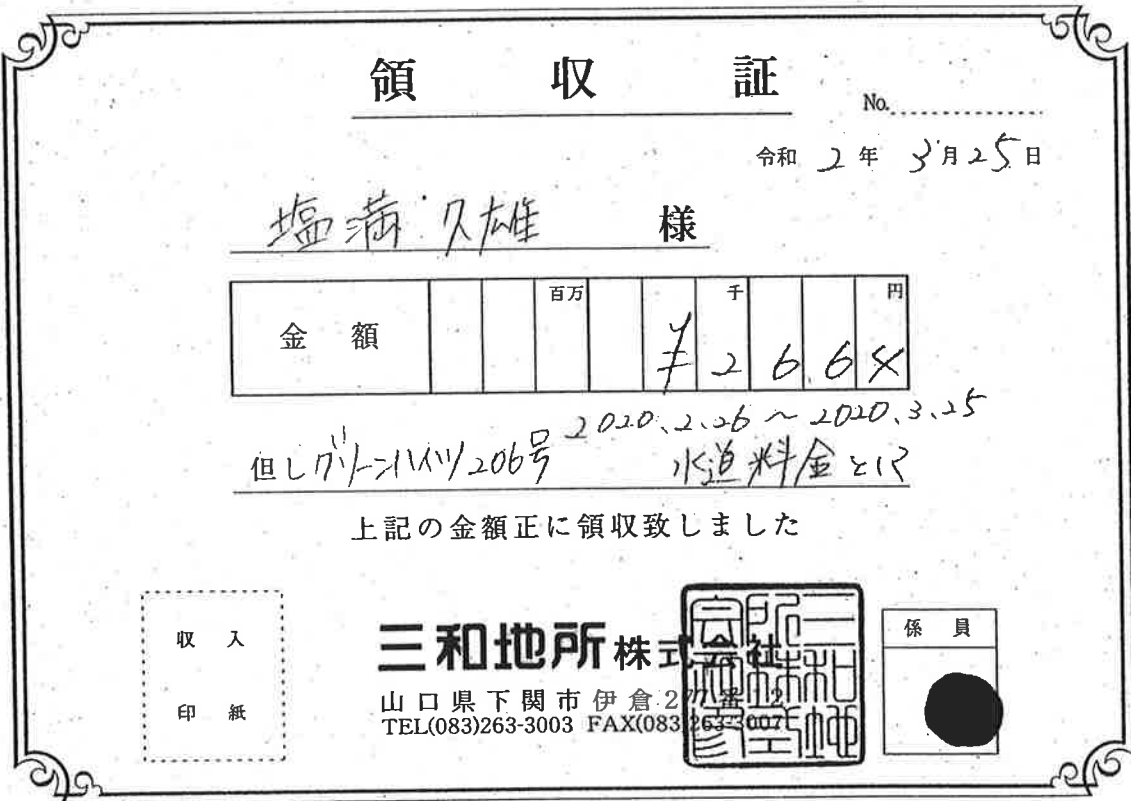 領収証
No.
令和 2年 3月25日
塩満 久雄 様
金額 百万 千 円
¥2664
2020.2.26～2020.3.25
但しグリーンハイツ206号 水道料金として
上記の金額正に領収致しました
収入
印紙
三和地所株式会社
山口県下関市伊倉277番12
TEL(083)263-3003 FAX(083)263-3007
係員